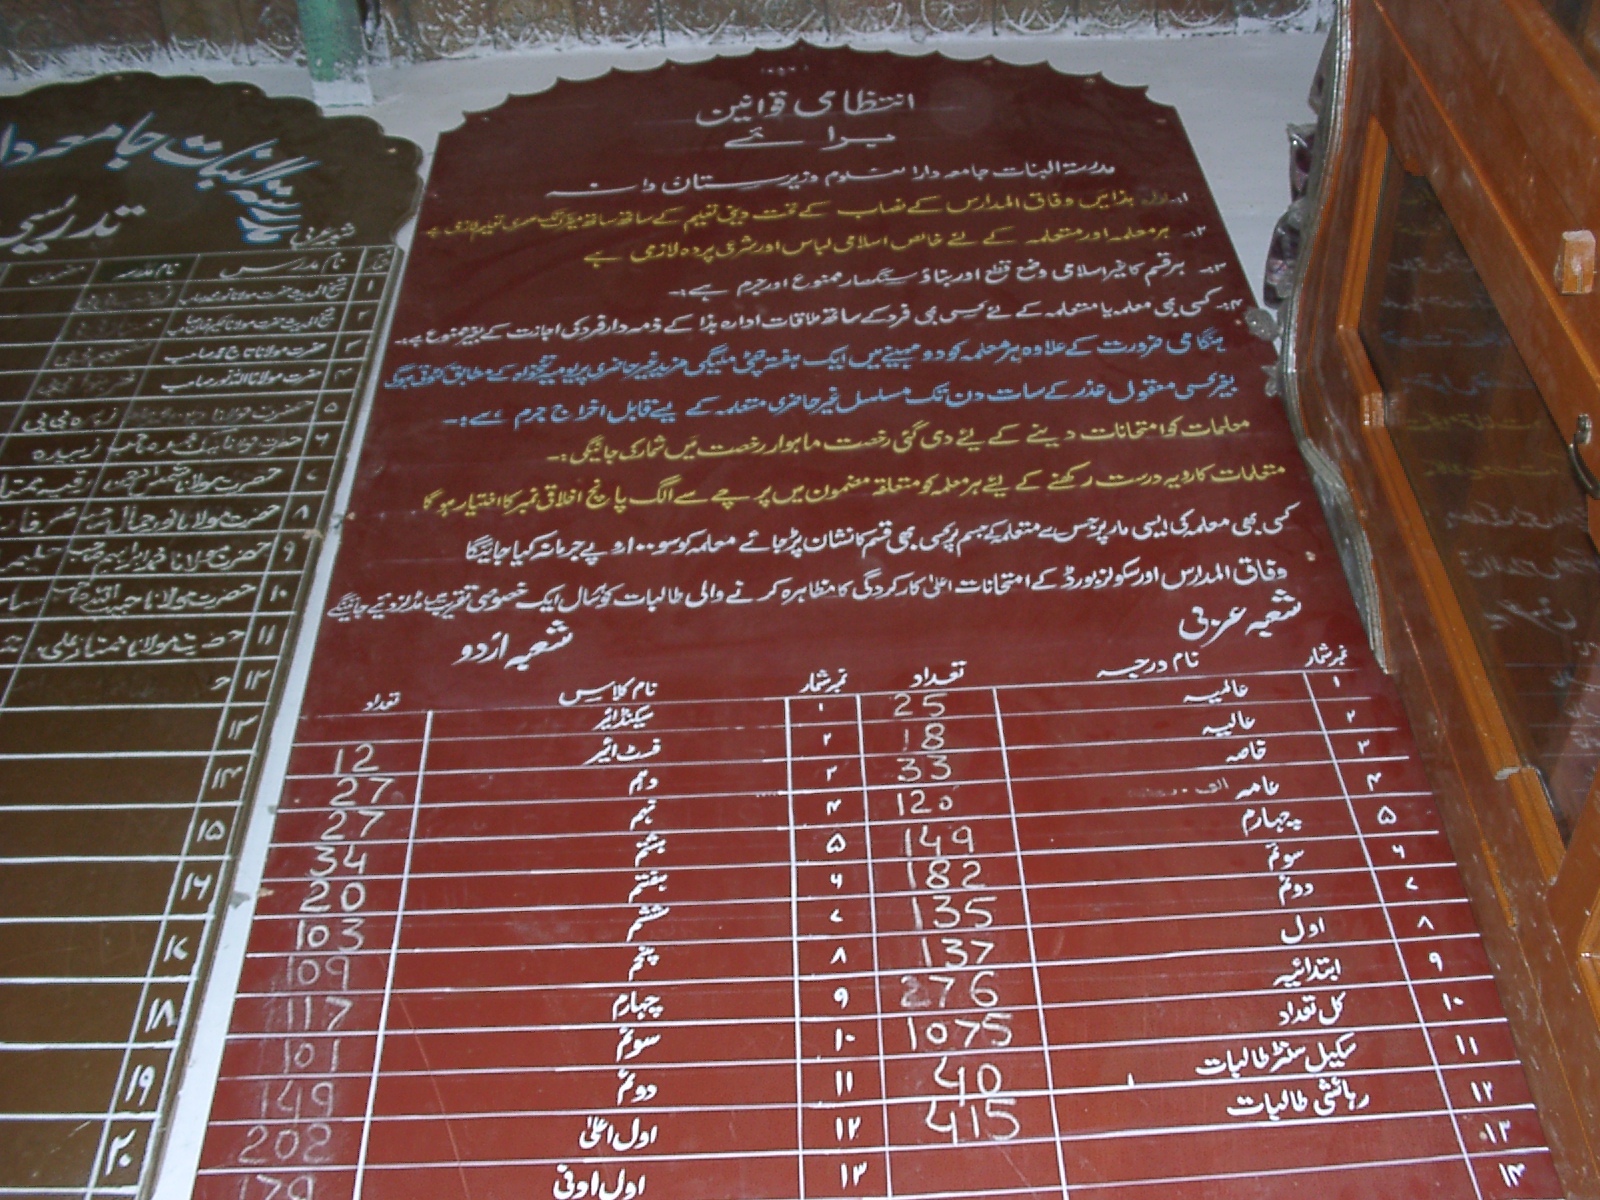 انتظامی قوانین
برائے
مدرسۃ البنات جامعہ دارالعلوم وزیرستان وانہ
ہذا میں وفاق المدارس کے نصاب کے تحت دینی تعلیم کے ساتھ ساتھ میٹرک تک عصری تعلیم لازمی ہے
۲۔ ہر معلمہ اور متعلمہ کے لئے خالص اسلامی لباس اور شرعی پردہ لازمی ہے
۳۔ ہر قسم کا غیر اسلامی وضع قطع اور بناؤ سنگھار ممنوع اور جرم ہے۔
۴۔ کسی بھی معلمہ یا متعلمہ کے لئے کسی بھی فرد کے ساتھ ملاقات ادارہ ہذا کے ذمہ دار فرد کی اجازت کے بغیر ممنوع ہے۔
ہنگامی ضرورت کے علاوہ ہر معلمہ کو دو مہینے میں ایک ہفتہ چھٹی ملیگی مزید غیر حاضری پر یومیہ تنخواہ کے مطابق کٹوتی ہوگی
بغیر کسی معقول عذر کے سات دن تک مسلسل غیر حاضری متعلمہ کے لیے قابل اخراج جرم ہے۔
معلمات کو امتحانات دینے کے لیئے دی گئی رخصت ماہوار رخصت میں شمار کی جائیگی۔
متعلمات کا رویہ درست رکھنے کے لیئے ہر معلمہ کو متعلقہ مضمون میں پرچے سے الگ پانچ اخلاقی نمبر کا اختیار ہوگا
کسی بھی معلمہ کی ایسی مار پر جس سے متعلمہ کے جسم پر کسی بھی قسم کا نشان پڑ جائے معلمہ کو سو ۱۰۰ روپے جرمانہ کیا جائیگا
وفاق المدارس اور سکولز بورڈ کے امتحانات اعلیٰ کارکردگی کا مظاہرہ کرنے والی طالبات کو ہر سال ایک خصوصی تقریب میں میڈلز دیئے جائینگے
شعبہ عربی
نمبر شمار نام درجہ تعداد
۱ عالمیہ 25
۲ عالیہ 18
۳ خاصہ 33
۴ عامہ الف 120
۵ چہارم 149
۶ سوئم 182
۷ دوئم 135
۸ اول 137
۹ ابتدائیہ 276
۱۰ کل تعداد 1075
۱۱ سکیل سنٹر طالبات 40
۱۲ رہائشی طالبات 415
۱۳
۱۴
شعبہ اردو
نمبر شمار نام کلاس تعداد
۱ سیکنڈائیر
۲ فسٹ ائیر 12
۳ دہم 27
۴ نہم 27
۵ ہشتم 34
۶ ہفتم 20
۷ ششم 103
۸ پنجم 109
۹ چہارم 117
۱۰ سوئم 101
۱۱ دوئم 149
۱۲ اول اعلیٰ 202
۱۳ اول اونی 179
البنات جامعہ دا
تدریسی
شعبہ عربی
نام مدرس نام مدرسہ مضمون
۱ شیخ الحدیث حضرت مولانا
۲ شیخ الحدیث حضرت مولانا
۳ حضرت مولانا تاج محمد صاحب
۴ حضرت مولانا اللہ نور صاحب
۵ حضرت مولانا زہرہ بی بی
۶ حضرت مولانا زبیدہ
۷ حضرت مولانا رقیہ ممتاز
۸ حضرت مولانا نور جمال
۹ حضرت مولانا محمد ابراہیم
۱۰ حضرت مولانا
۱۱ حضرت مولانا ممتاز علی
۱۲
۱۳
۱۴
۱۵
۱۶
۱۷
۱۸
۱۹
۲۰